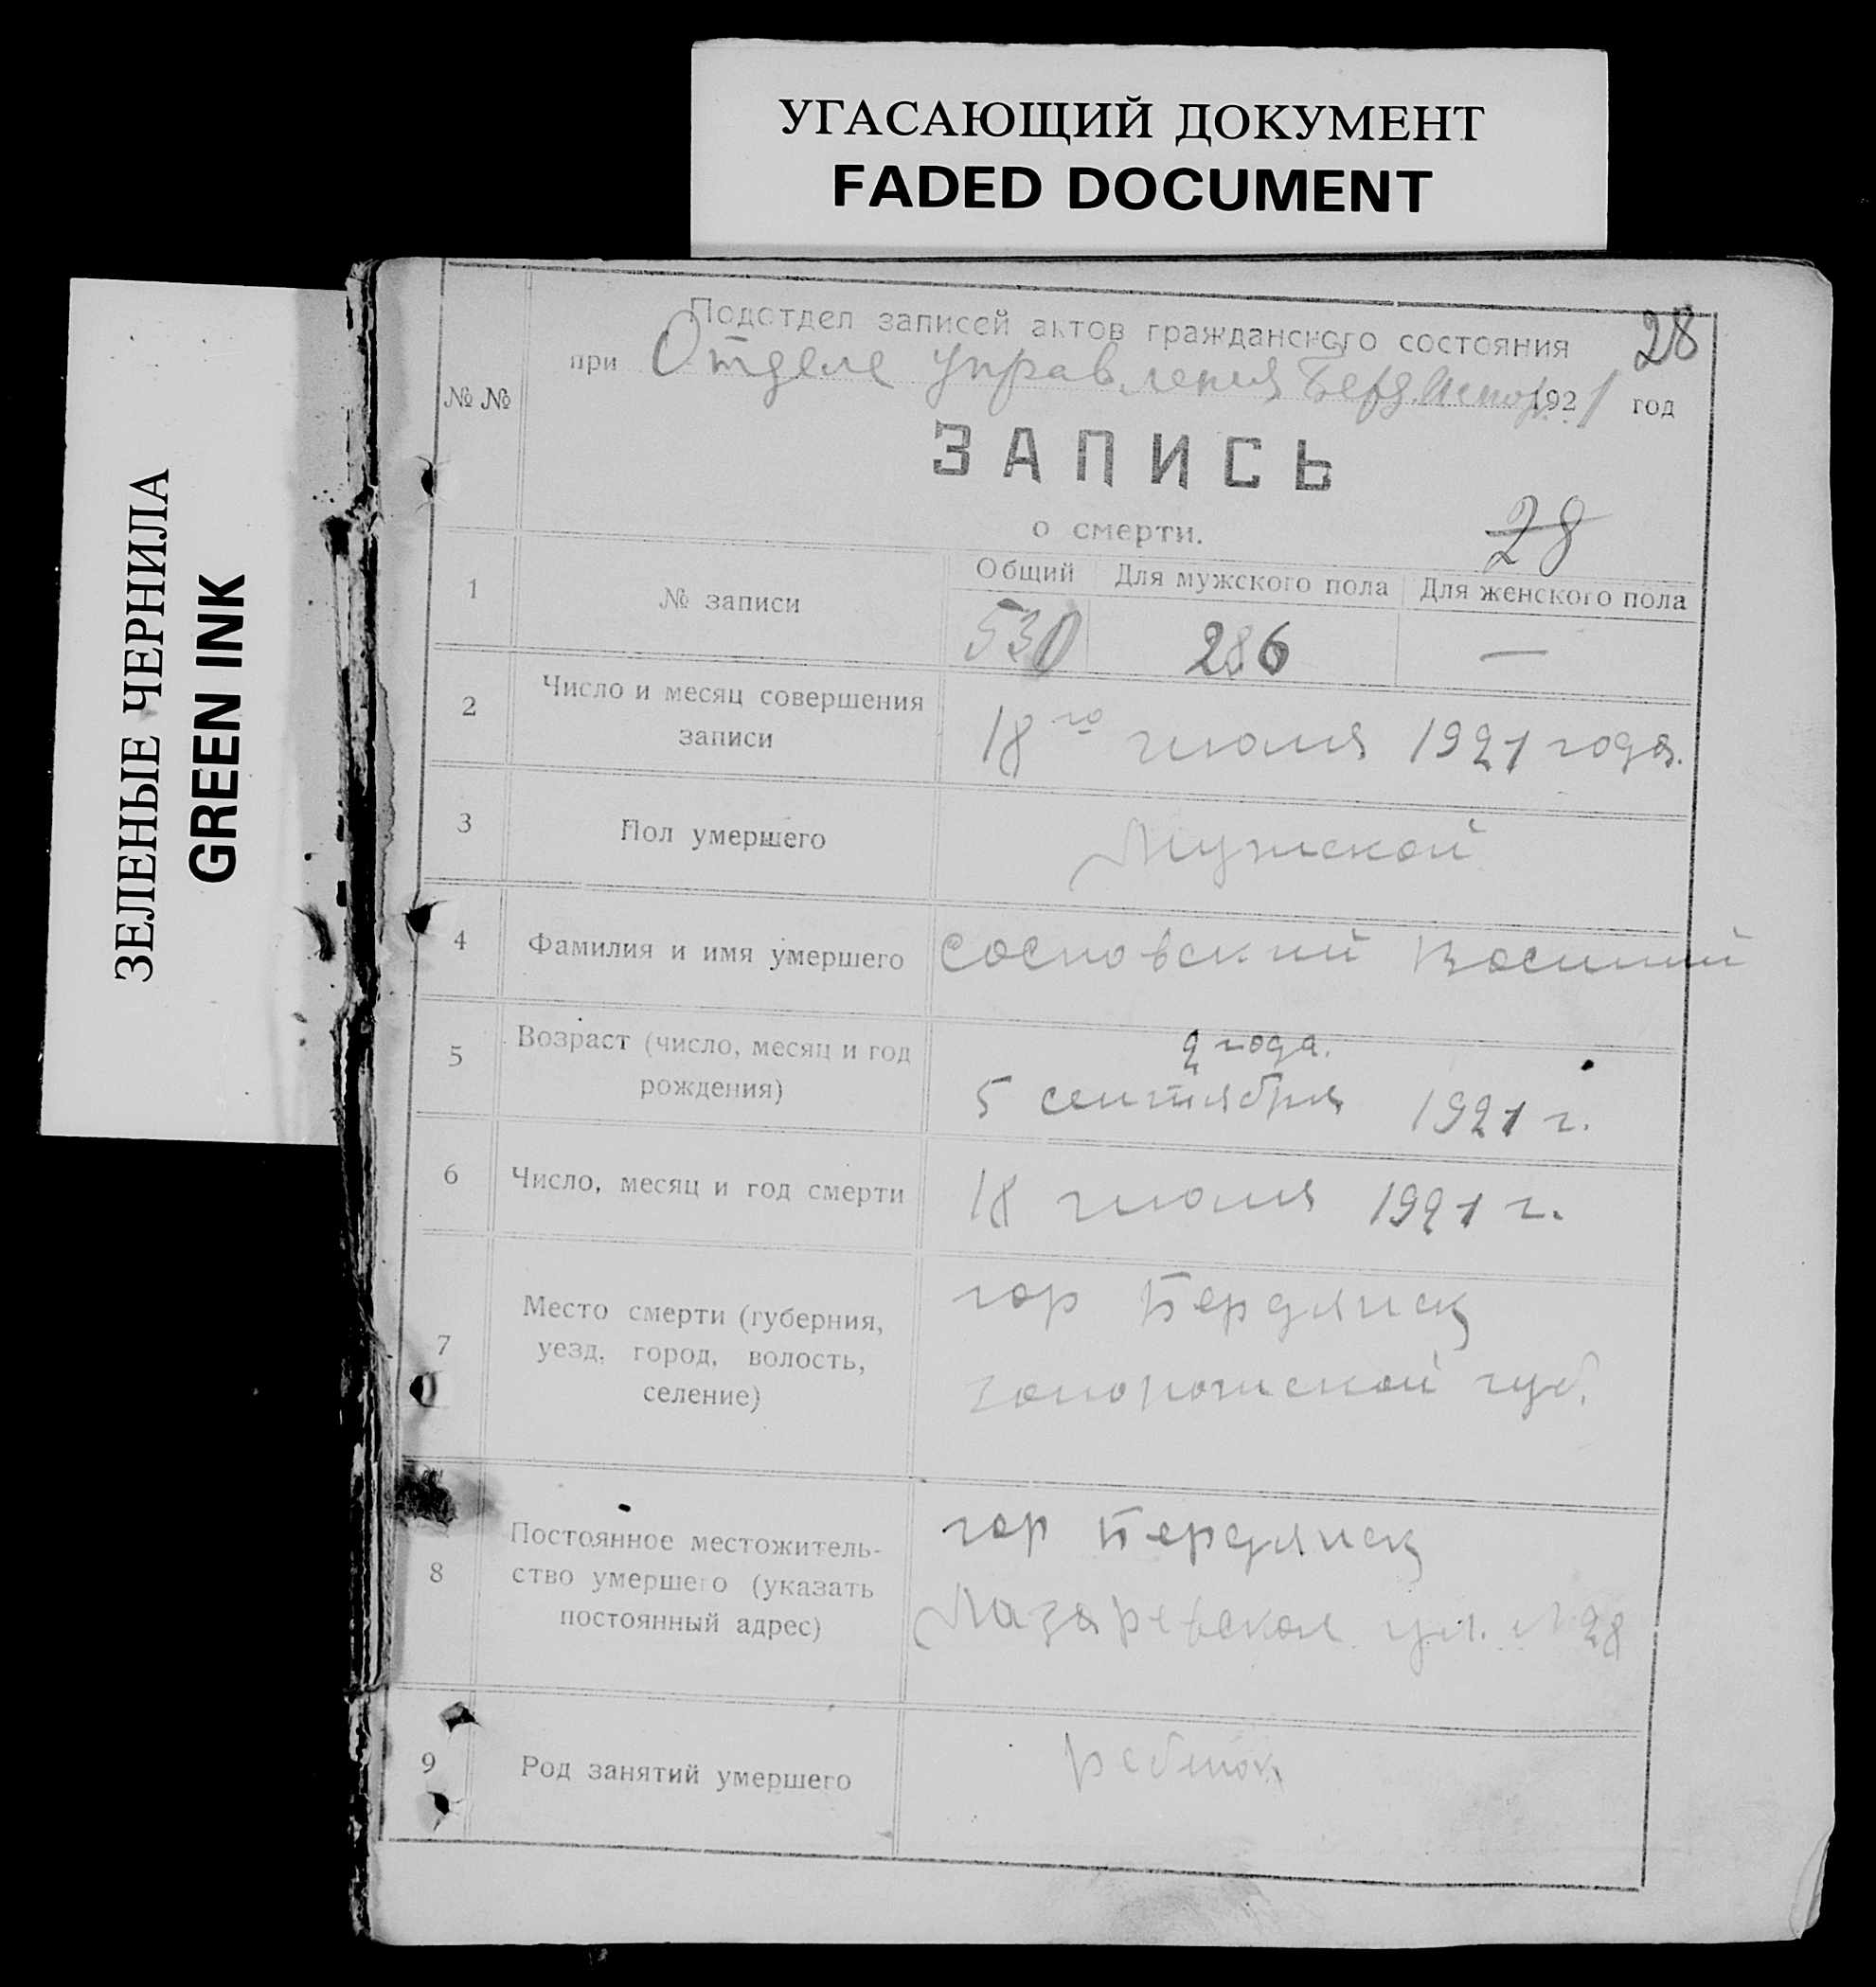 УГАСАЮЩИЙ ДОКУМЕНТ
FADED DOCUMENT
ЗЕЛЕНЫЕ ЧЕРНИЛА
GREEN INK
28
Подотдел записей актов гражданского состояния
при Отделе управления Берд. 1921 год
№ №
ЗАПИСЬ
о смерти.
28
1 № записи Общий Для мужского пола Для женского пола
530 286 —
2 Число и месяц совершения записи
18го июля 1921 года.
3 Пол умершего Мужской
4 Фамилия и имя умершего Сосновский Василий
5 Возраст (число, месяц и год рождения)
2 года.
5 сентября 1921 г.
6 Число, месяц и год смерти 18 июля 1921 г.
7 Место смерти (губерния, уезд, город, волость, селение)
гор Бердянск
Запорожской губ.
8 Постоянное местожитель-
ство умершего (указать
постоянный адрес)
гор Бердянск
Лазаревская ул. № 28
9 Род занятий умершего ребенок